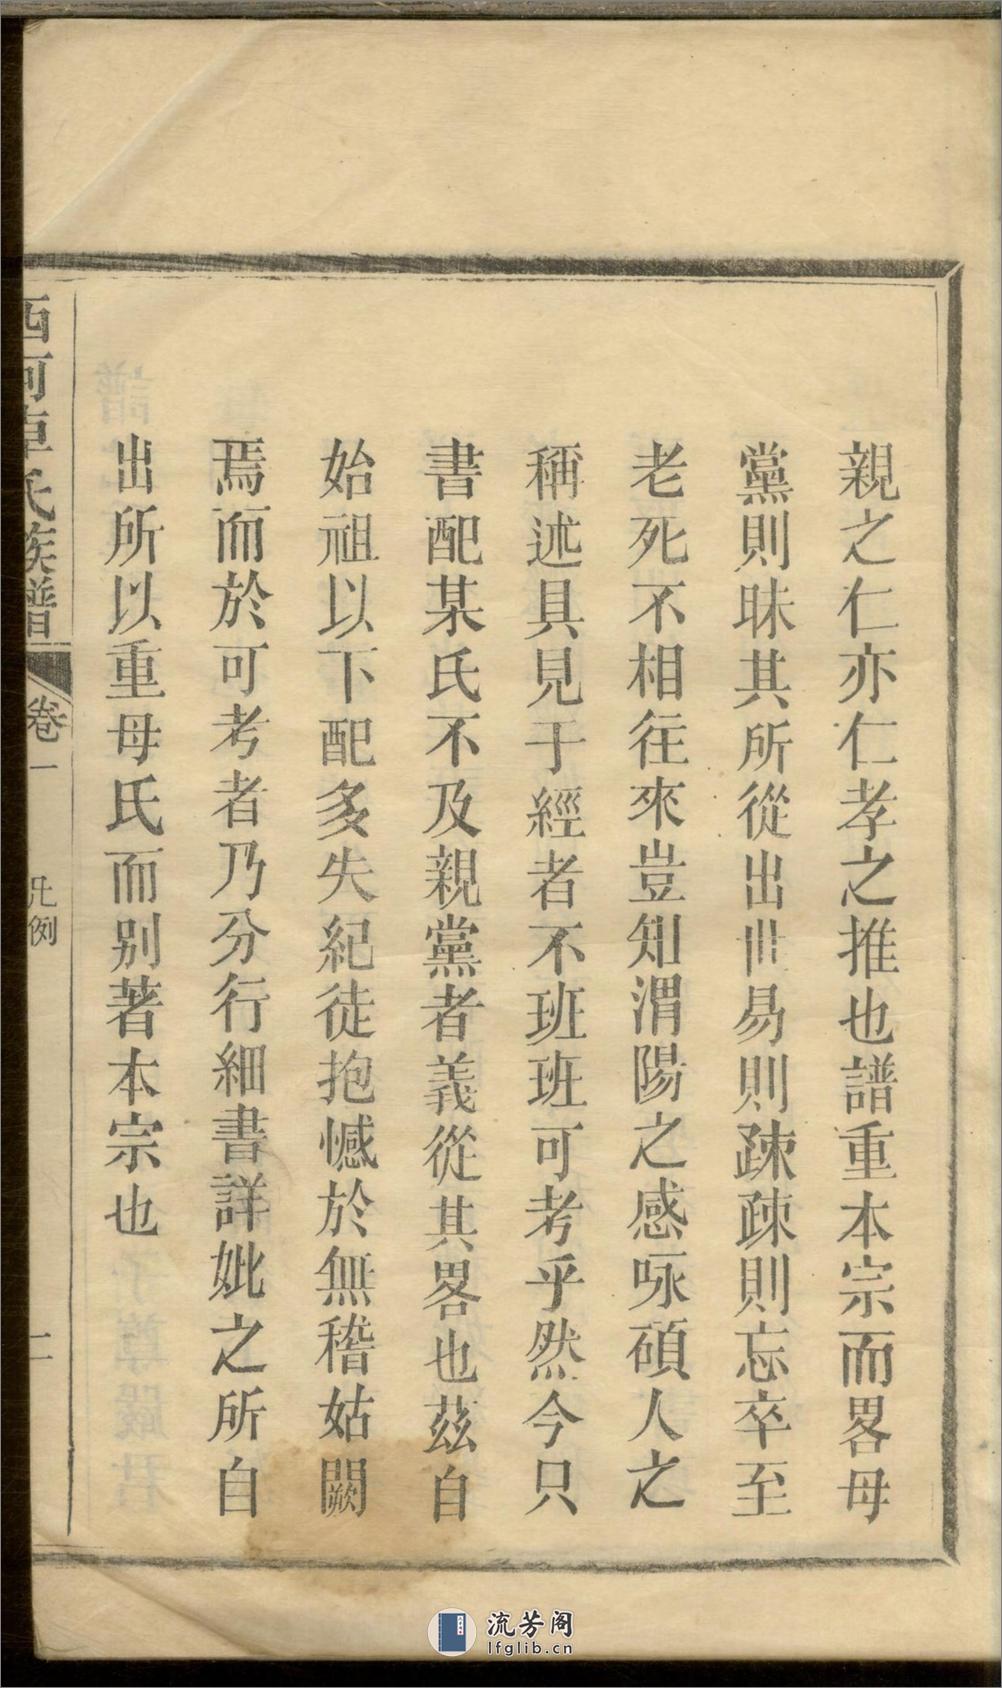 親之仁亦仁孝之推也譜重本宗而畧母
黨則昧其所從出世易則疎疎則忘卒至
老死不相往來豈知渭陽之感咏碩人之
稱述具見于經者不班班可考乎然今只
書配某氏不及親黨者義從其畧也茲自
始祖以下配多失紀徒抱憾於無稽姑闕
焉而於可考者乃分行細書詳妣之所自
出所以重母氏而別著本宗也
西河卓氏族譜 卷一 凡例 二
流芳阁
lfglib.cn